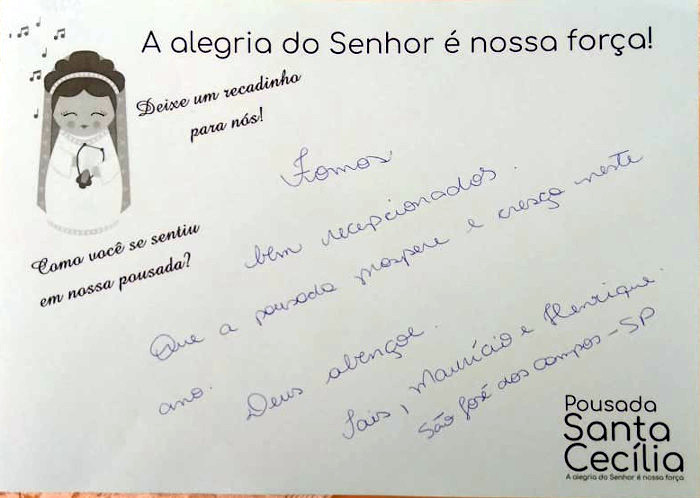 A alegria do Senhor é nossa força!
Deixe um recadinho
para nós!
Como você se sentiu
em nossa pousada?
Fomos
bem recepcionados.
Que a pousada prospere e cresça neste
ano.
Deus abençoe.
Lais, Maurício e Henrique.
São José dos campos - SP
Pousada
Santa
Cecília
A alegria do Senhor é nossa força